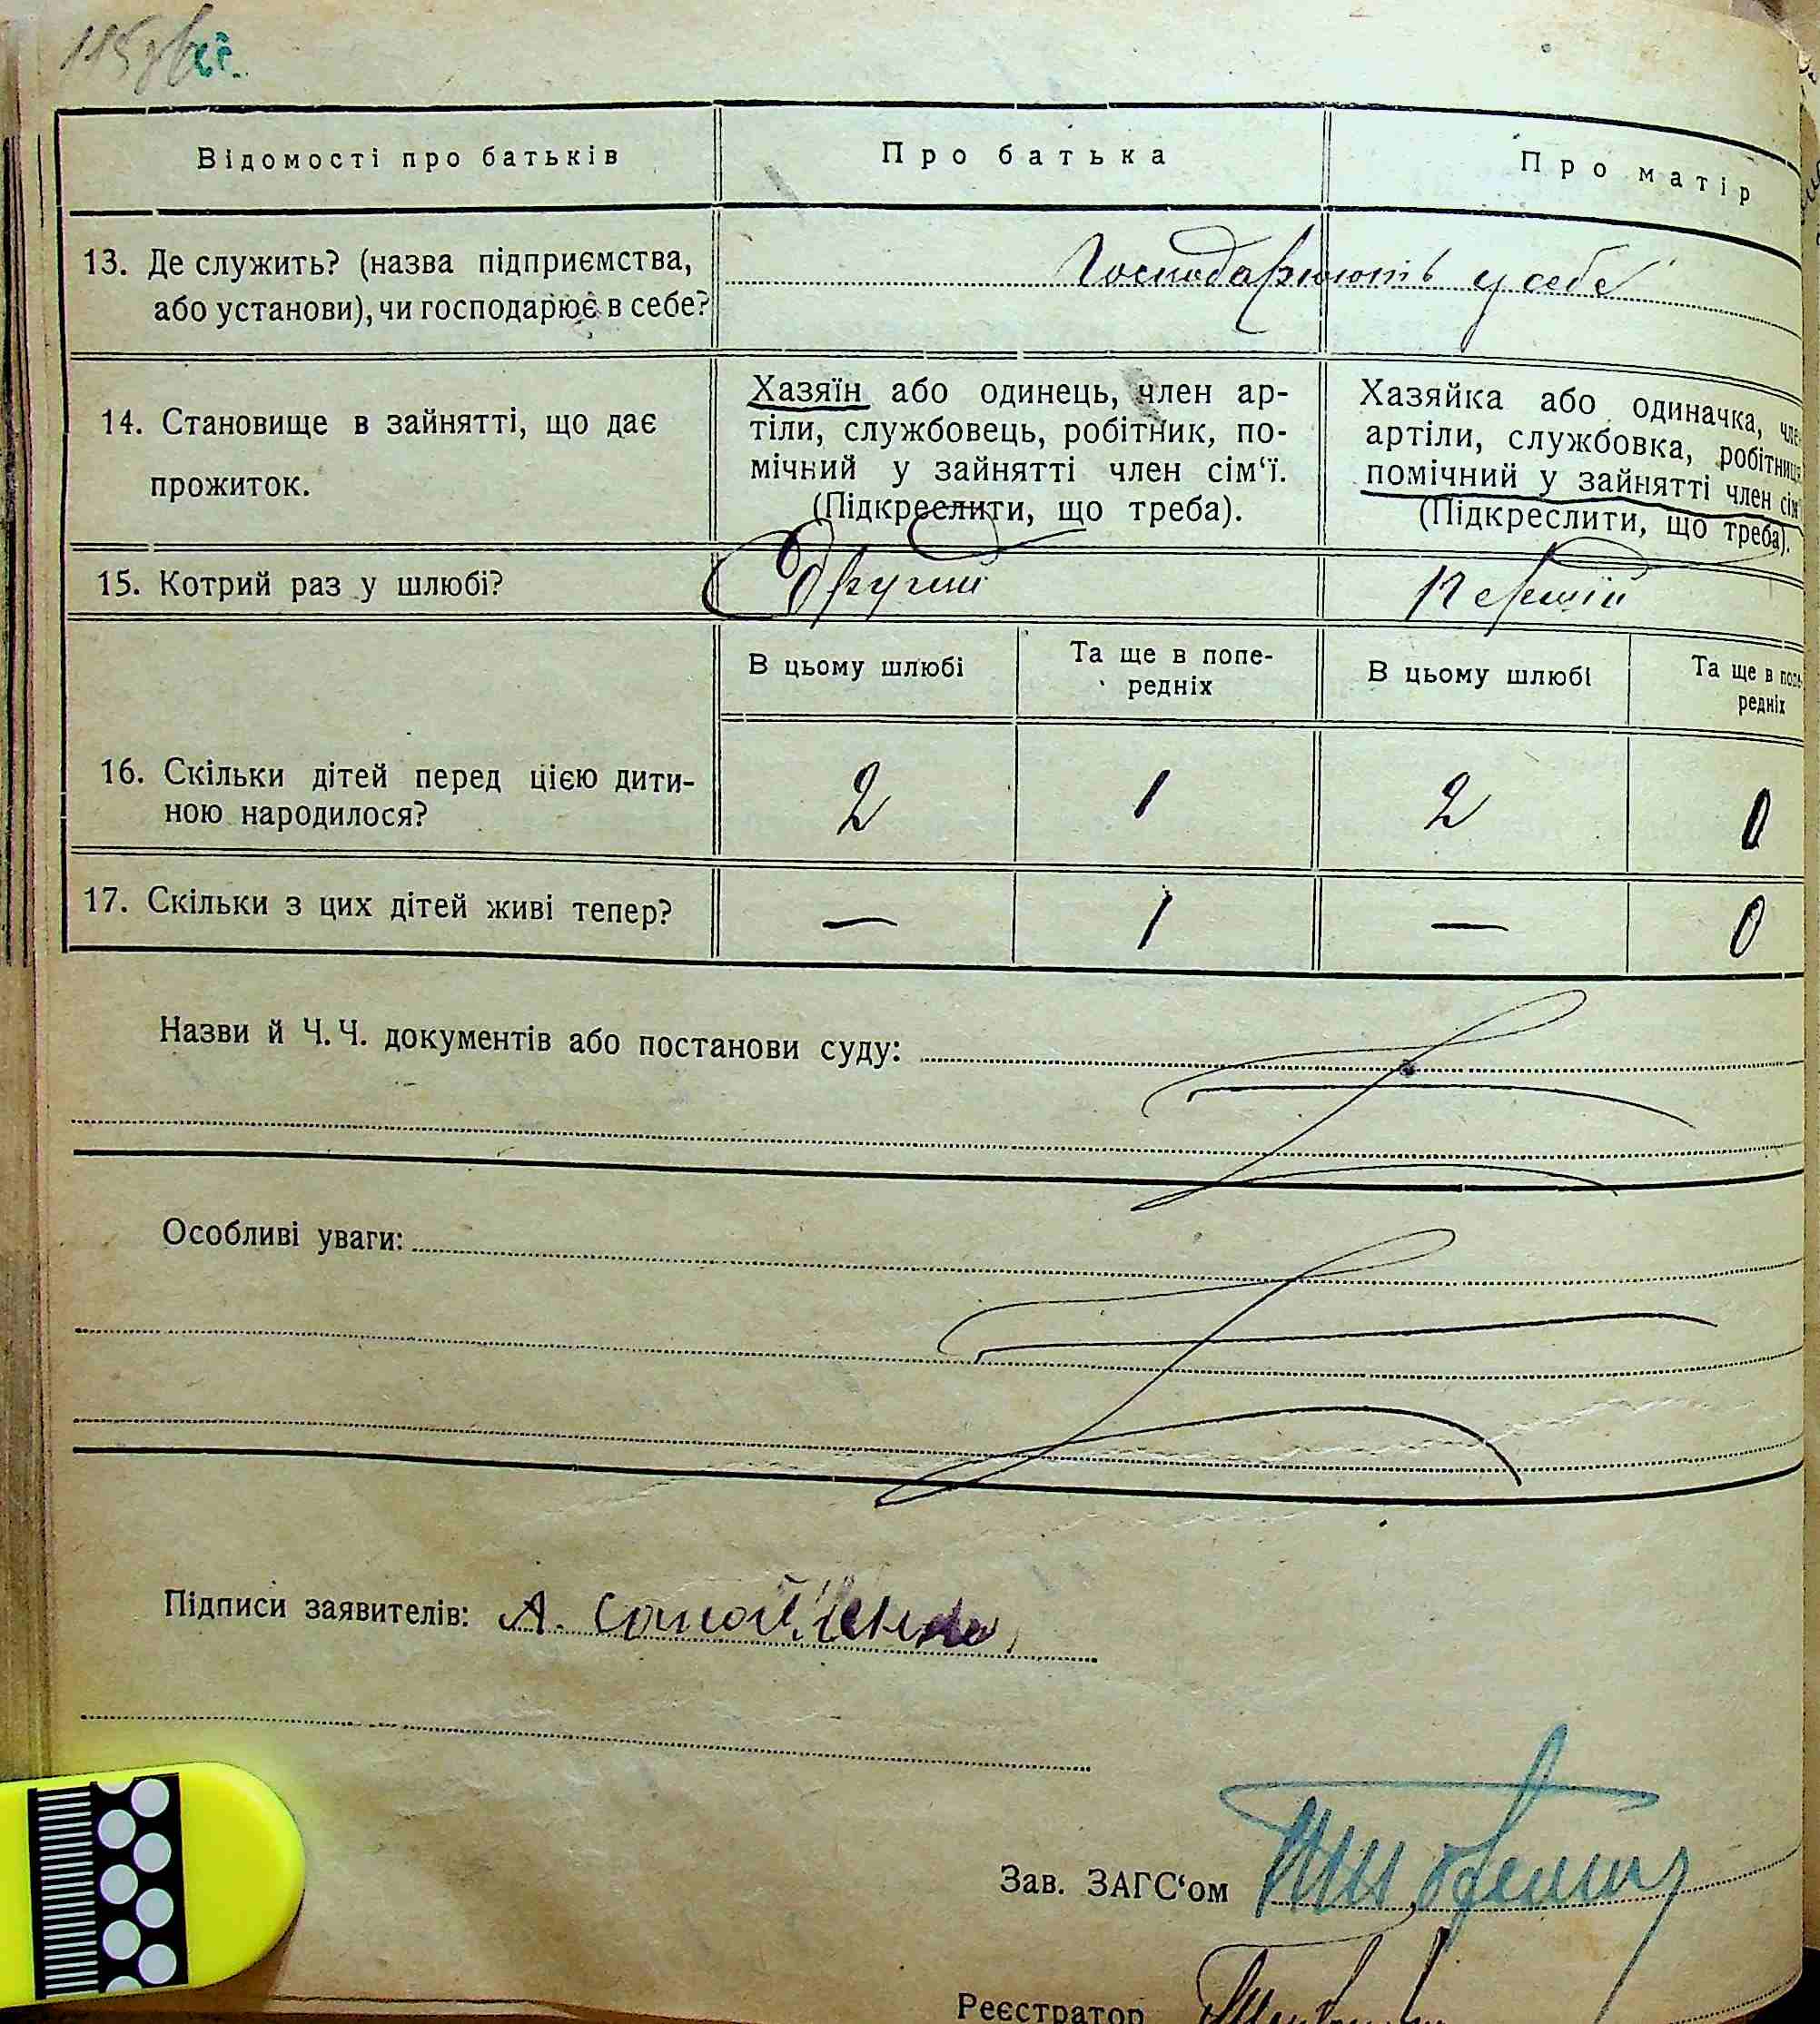 115 зв.
Відомості про батьків
Про батька
Про матір
13. Де служить? (назва підприємства,
або установи), чи господарює в себе?
Господарюють у себе
14. Становище в зайнятті, що дає
прожиток.
Хазяїн або одинець, член ар-
тіли, службовець, робітник, по-
мічний у зайнятті член сім‘ї.
(Підкреслити, що треба).
Хазяйка або одиначка, чле-
артіли, службовка, робітниця
помічний у зайнятті член сім
(Підкреслити, що треба).
15. Котрий раз у шлюбі?
Другий
Перший
В цьому шлюбі
Та ще в попе-
редніх
В цьому шлюбі
Та ще в попе-
редніх
16. Скільки дітей перед цією дити-
ною народилося?
2 1 2 0
17. Скільки з цих дітей живі тепер?
— 1 — 0
Назви й Ч. Ч. документів або постанови суду:
Особливі уваги:
Підписи заявителів: А.
Зав. ЗАГС‘ом
Реєстратор